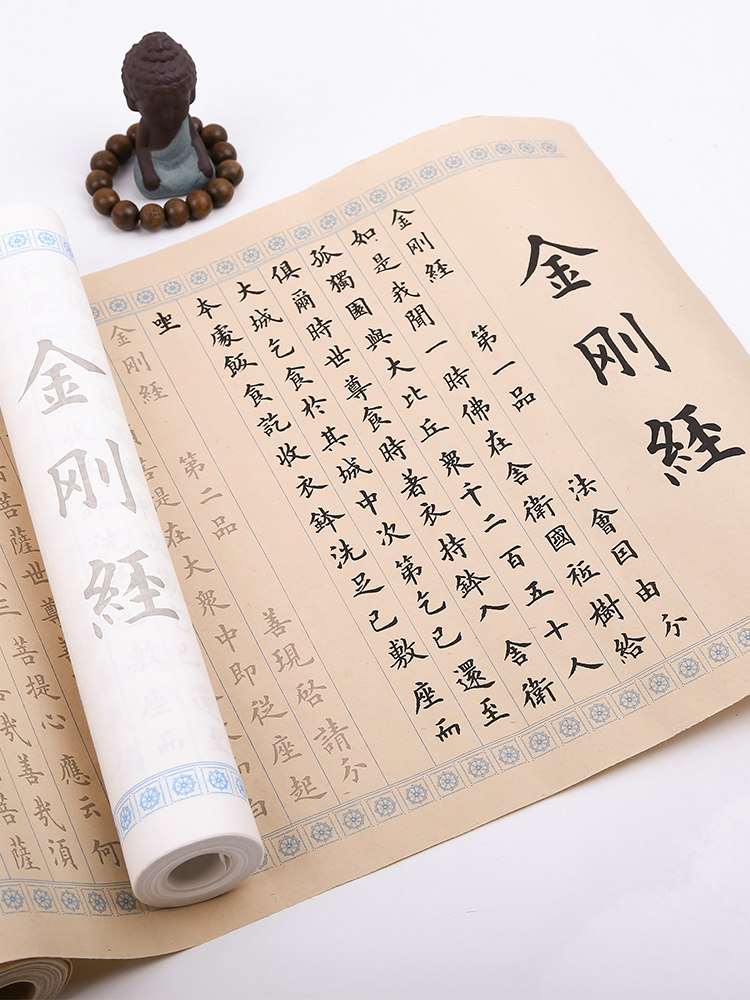 金刚經
金刚經 第一品 法會因由分
如是我聞一時佛在舍衛國祇樹給
孤獨園與大比丘衆千二百五十人
俱爾時世尊食時著衣持鉢入舍衛
大城乞食於其城中次第乞已還至
本處飯食訖收衣鉢洗足已敷座而
坐
金刚經 第二品 善現啓請分
須菩提在大衆中即從座起
白
金刚經
菩薩世尊善
三菩提心應云何
哉善哉須
菩薩